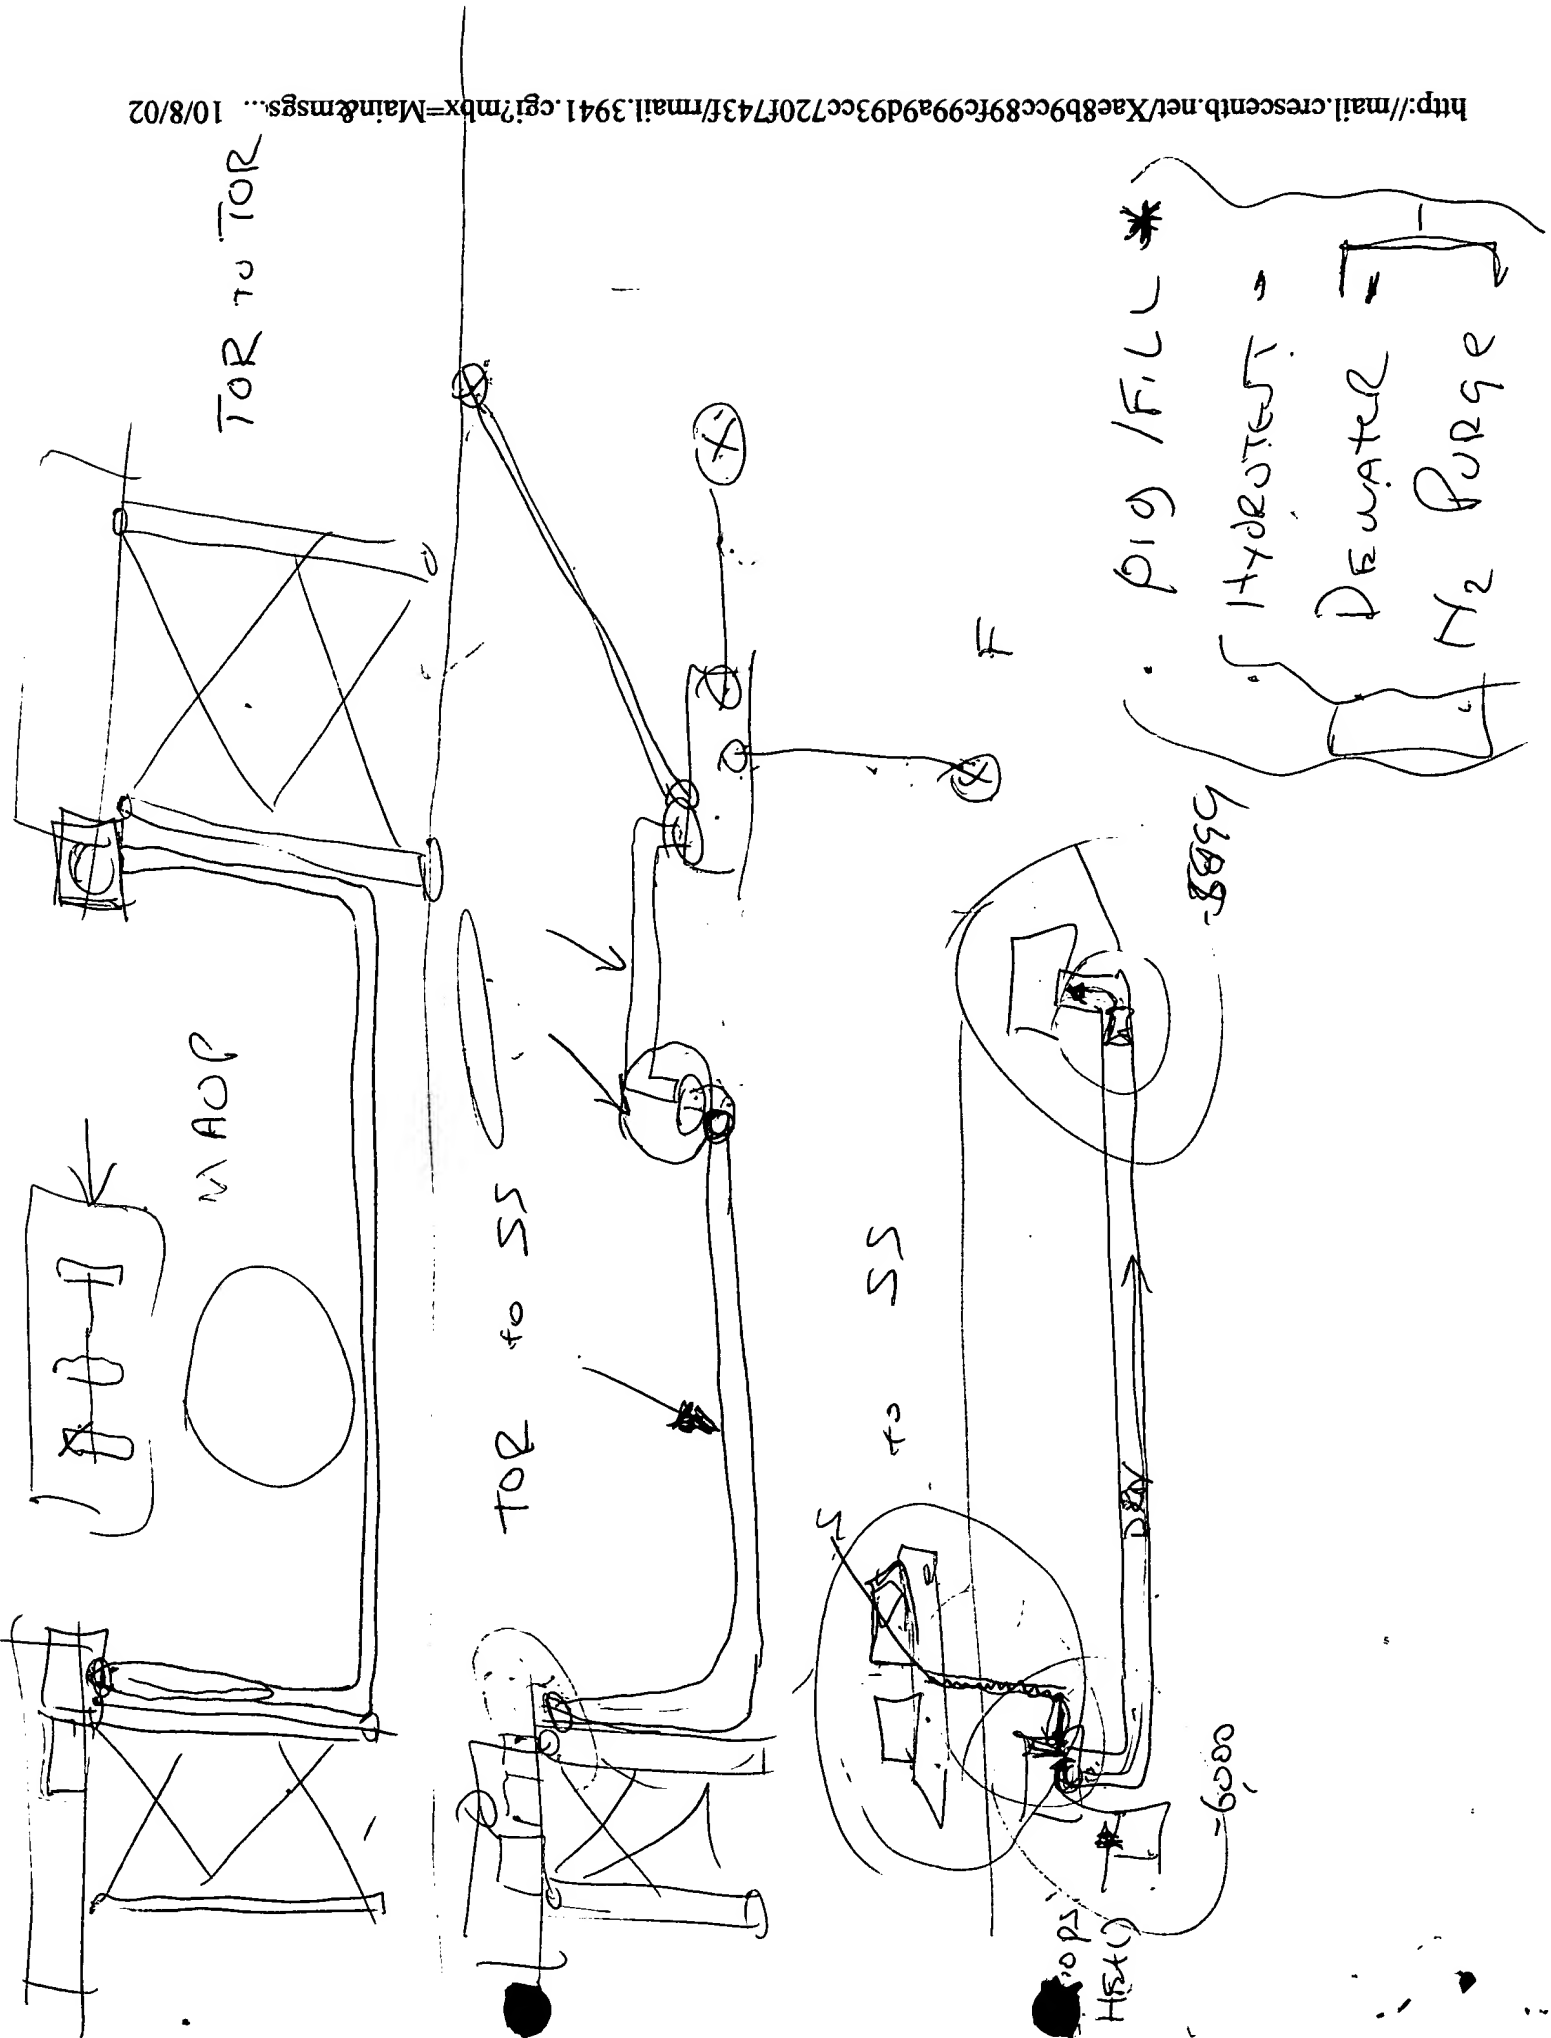 http://mail.crescentb.net/Xae8b9cc89fc99a9d93cc720f743f/rmail.3941.cgi?mbx=Main&msgs... 10/8/02
TOR TO TOR
MAOP
TOR to SS
SS to SS
F
DEN
-6,000
pig / FILL *
HYDROTEST
DEWATER
N2 PURGE